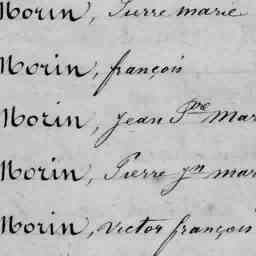 Morin, Pierre marie
Morin, françois
Morin, Jean Pre Mar
Morin, Pierre Jn mar
Morin, victor françois